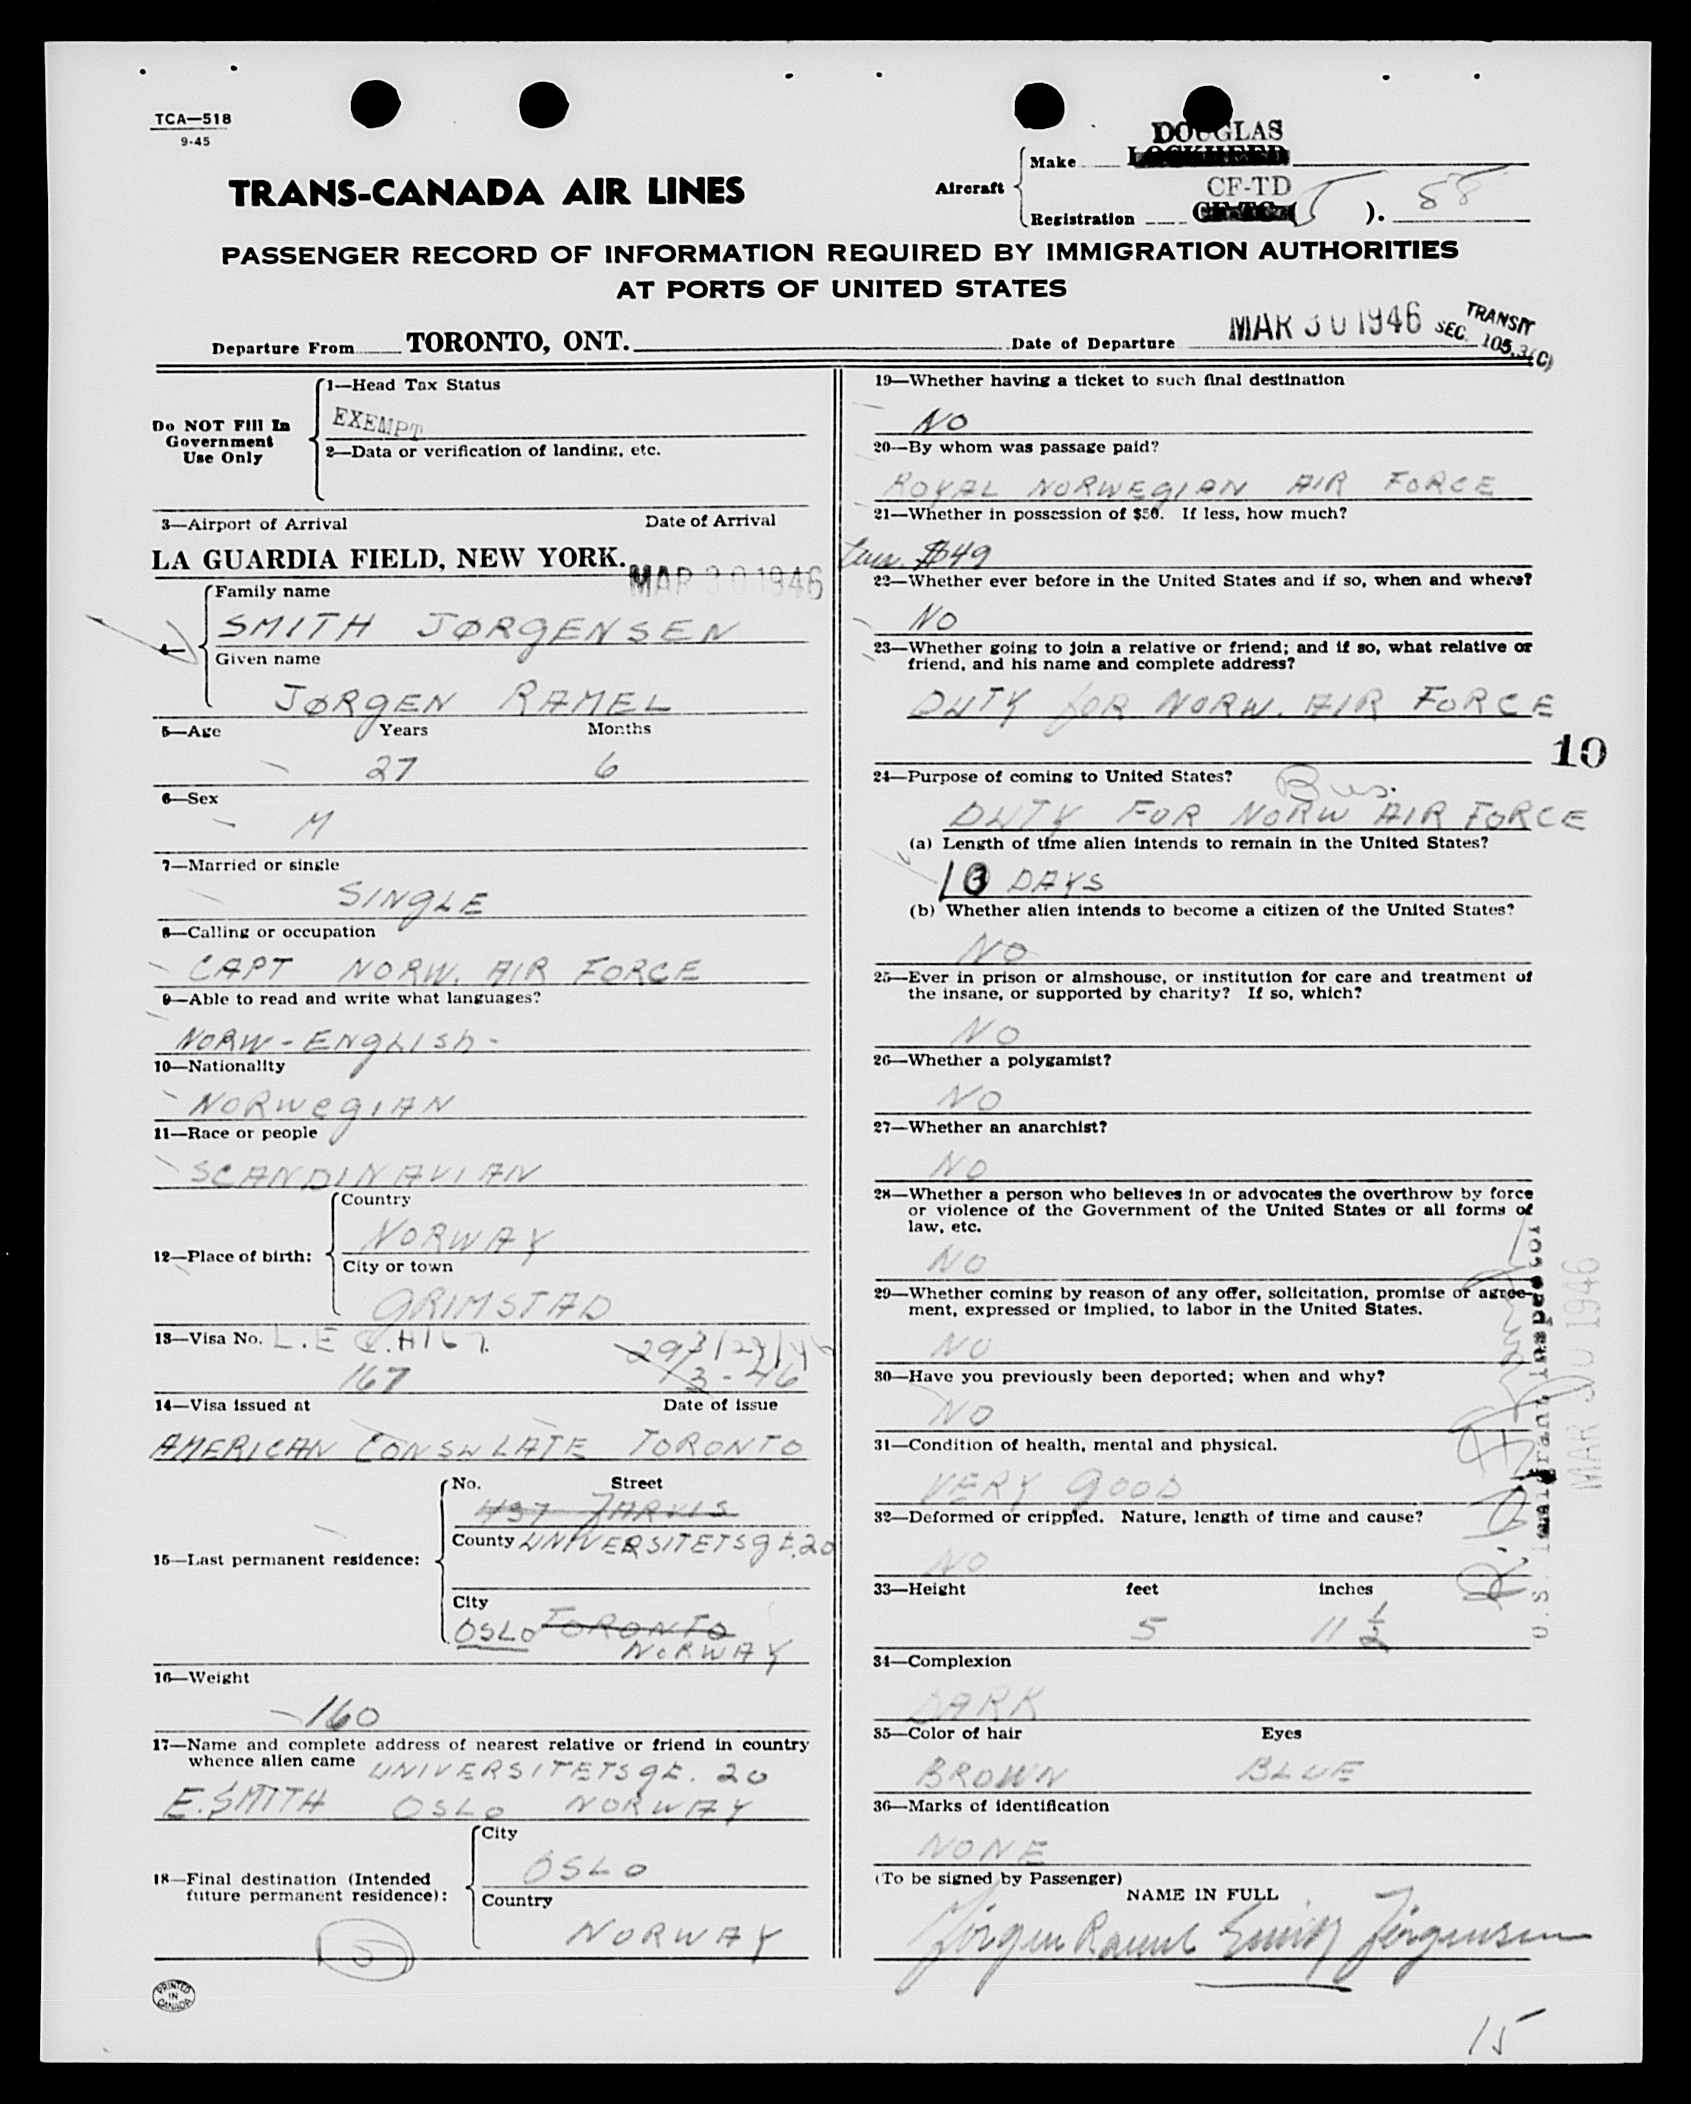 TCA—518
9-45
DOUGLAS
Make
Aircraft
CF-TD
Registration ( T ). 58
TRANS-CANADA AIR LINES
PASSENGER RECORD OF INFORMATION REQUIRED BY IMMIGRATION AUTHORITIES
AT PORTS OF UNITED STATES
Departure From TORONTO, ONT. Date of Departure MAR 30 1946
TRANSIT
SEC. 105.3(C)
Do NOT Fill In
Government
Use Only
1—Head Tax Status
EXEMPT
2—Data or verification of landing, etc.
3—Airport of Arrival Date of Arrival
LA GUARDIA FIELD, NEW YORK. MAR 30 1946
4—
Family name
SMITH JØRGENSEN
Given name
JØRGEN RAMEL
5—Age Years Months
27 6
6—Sex
M
7—Married or single
SINGLE
8—Calling or occupation
CAPT NORW. AIR FORCE
9—Able to read and write what languages?
NORW - ENGLISH -
10—Nationality
NORWEGIAN
11—Race or people
SCANDINAVIAN
12—Place of birth:
Country
NORWAY
City or town
GRIMSTAD
13—Visa No.
167
14—Visa issued at Date of issue
AMERICAN CONSULATE TORONTO
15—Last permanent residence:
No. Street
437 JARVIS
County UNIVERSITETSGT. 20
City
OSLO TORONTO
NORWAY
16—Weight
160
17—Name and complete address of nearest relative or friend in country
whence alien came UNIVERSITETSGT. 20
E. SMITH OSLO NORWAY
18—Final destination (Intended
future permanent residence):
City
OSLO
Country
NORWAY
PRINTED
IN
CANADA
19—Whether having a ticket to such final destination
NO
20—By whom was passage paid?
ROYAL NORWEGIAN AIR FORCE
21—Whether in possession of $50. If less, how much?
$49
22—Whether ever before in the United States and if so, when and where?
NO
23—Whether going to join a relative or friend; and if so, what relative or
friend, and his name and complete address?
DUTY FOR NORW. AIR FORCE
10
24—Purpose of coming to United States?
Bus.
DUTY FOR NORW AIR FORCE
(a) Length of time alien intends to remain in the United States?
DAYS
(b) Whether alien intends to become a citizen of the United States?
NO
25—Ever in prison or almshouse, or institution for care and treatment of
the insane, or supported by charity? If so, which?
NO
26—Whether a polygamist?
NO
27—Whether an anarchist?
NO
28—Whether a person who believes in or advocates the overthrow by force
or violence of the Government of the United States or all forms of
law, etc.
NO
29—Whether coming by reason of any offer, solicitation, promise or agree-
ment, expressed or implied, to labor in the United States.
NO
30—Have you previously been deported; when and why?
NO
31—Condition of health, mental and physical.
VERY GOOD
32—Deformed or crippled. Nature, length of time and cause?
NO
33—Height feet inches
5 11 1/2
34—Complexion
DARK
35—Color of hair Eyes
BROWN BLUE
36—Marks of identification
NONE
(To be signed by Passenger)
NAME IN FULL
Jörgen Ramel Smith Jörgensen
U.S. Immigrant Inspector
MAR 30 1946
15